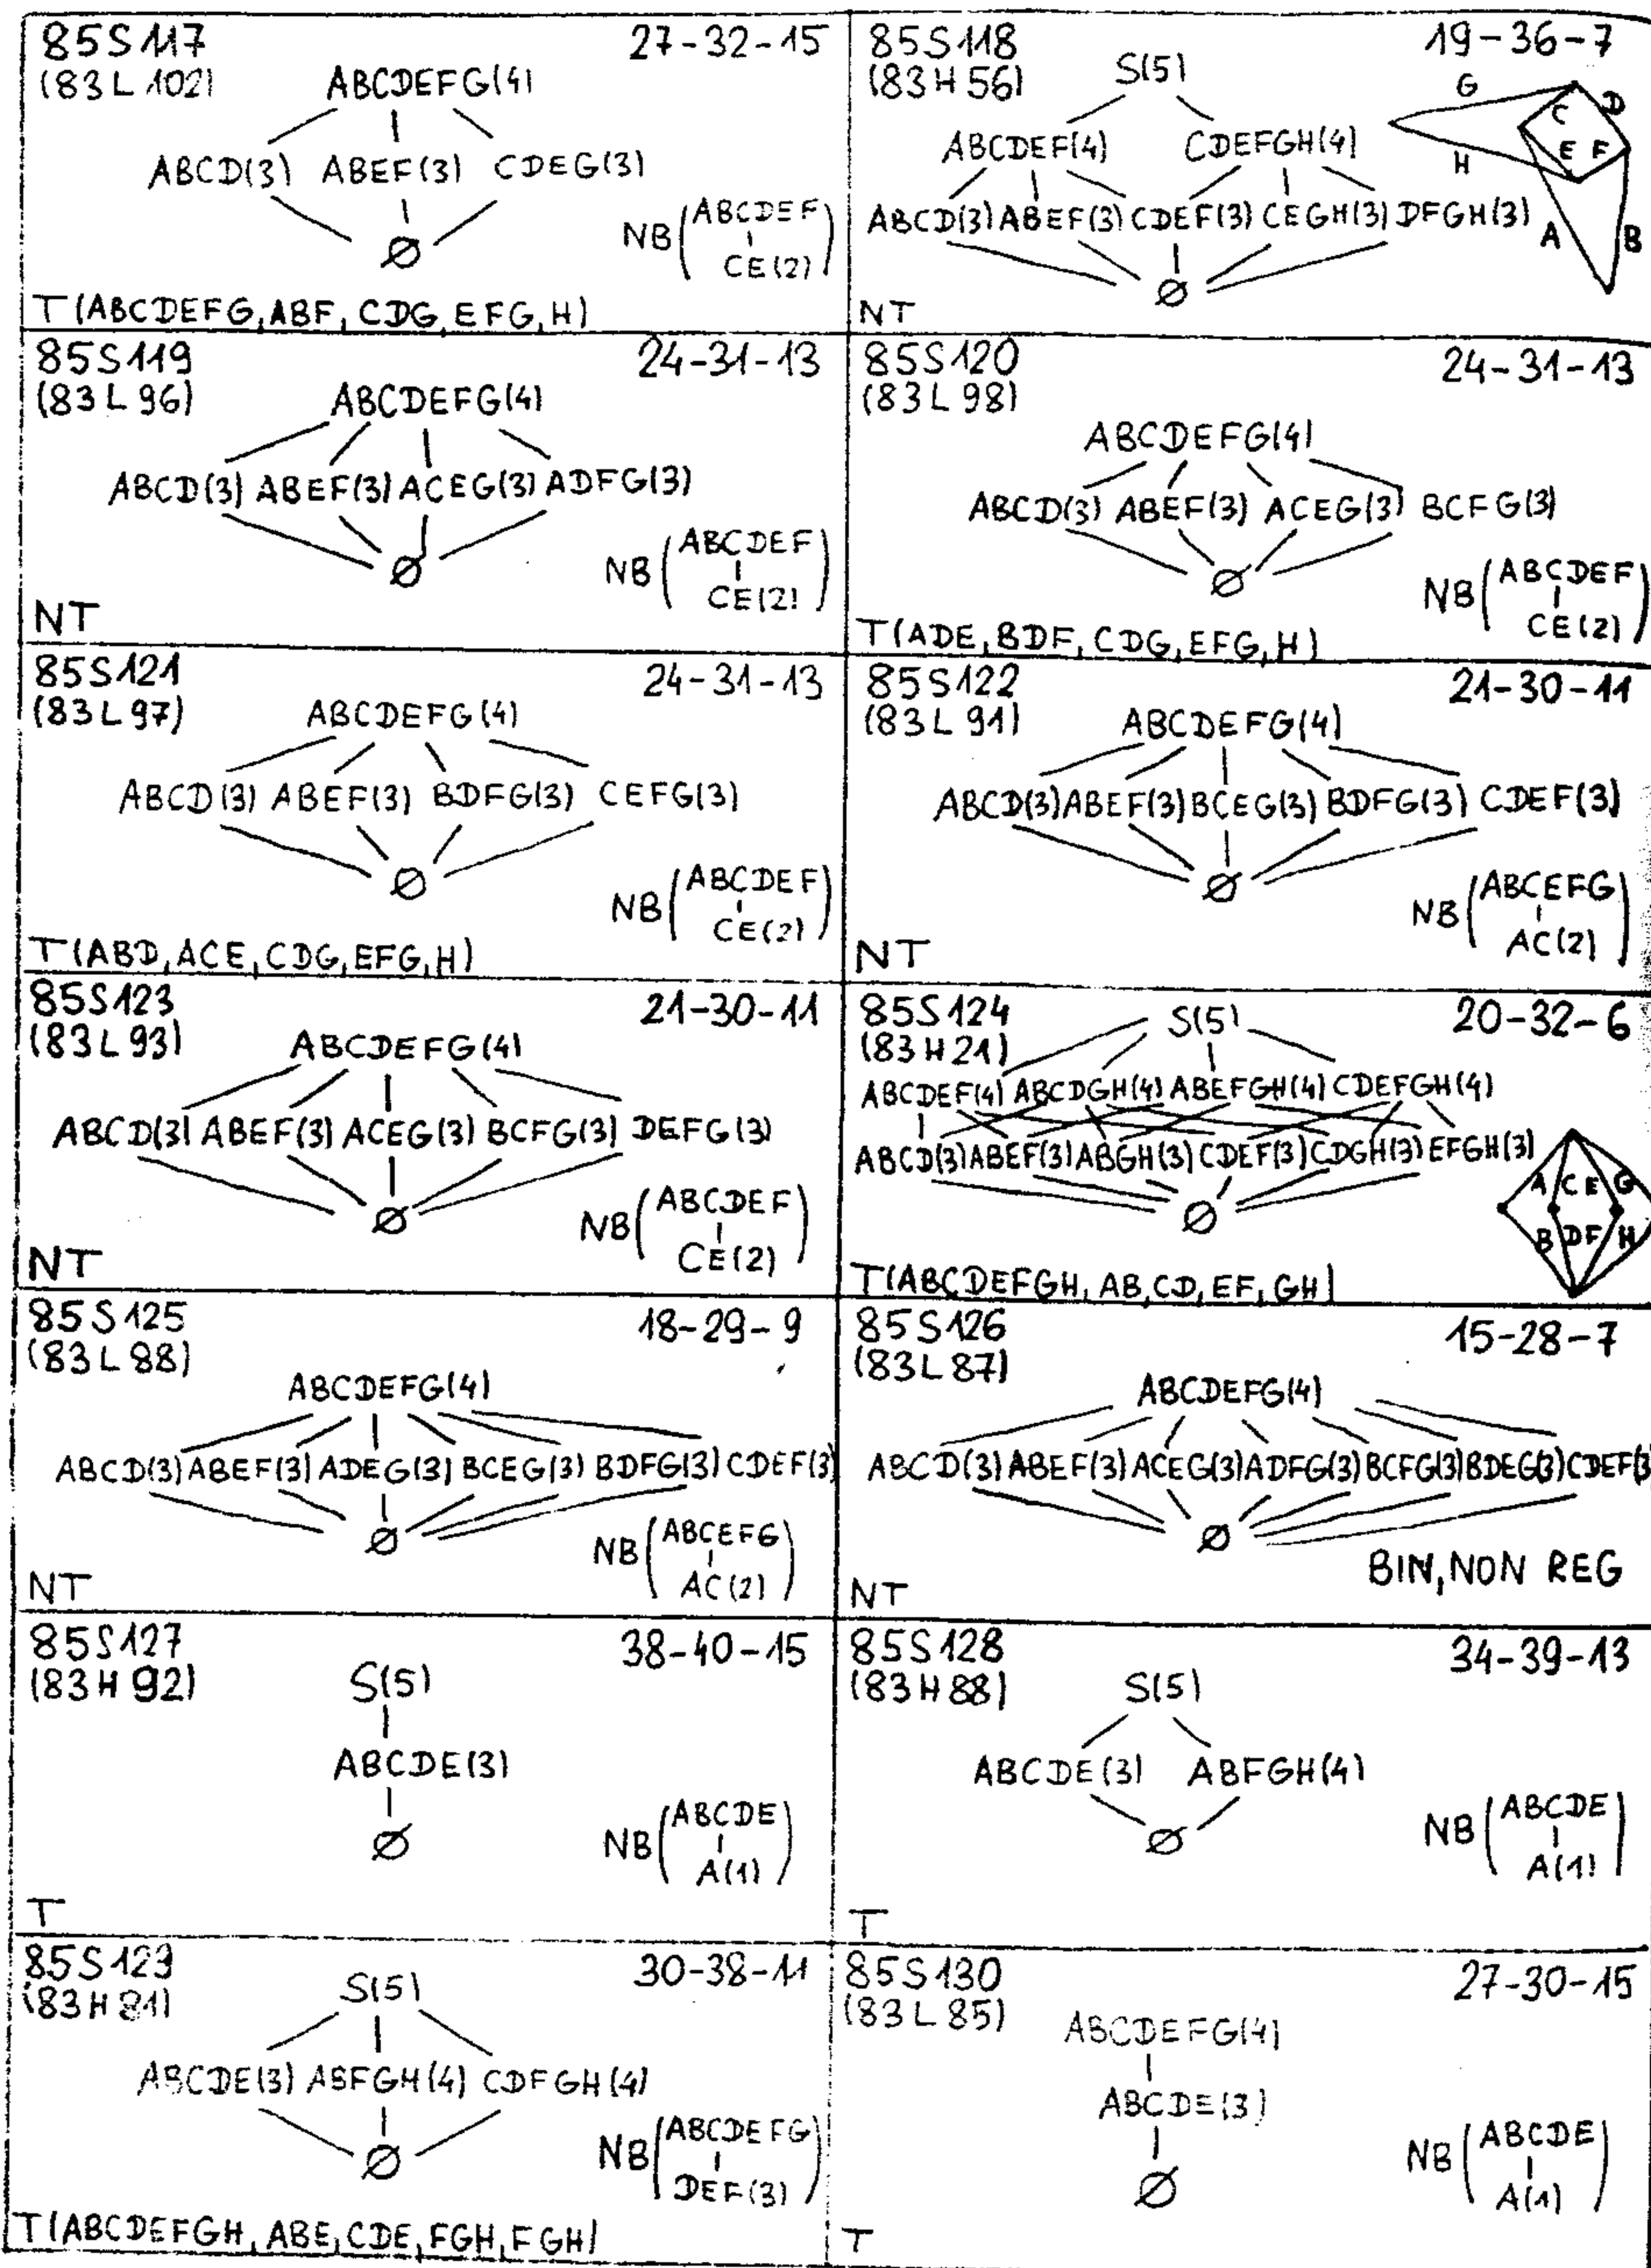 85S117 27-32-15
(83L102)
ABCDEFG(4)
ABCD(3) ABEF(3) CDEG(3)
∅
NB(ABCDEF
CE(2))
T(ABCDEFG,ABF,CDG,EFG,H)
85S118 19-36-7
(83H56)
S(5)
ABCDEF(4) CDEFGH(4)
ABCD(3) ABEF(3) CDEF(3) CEGH(3) DFGH(3)
∅
G
C D
E F
H
A B
NT
85S119 24-31-13
(83L96)
ABCDEFG(4)
ABCD(3) ABEF(3) ACEG(3) ADFG(3)
∅
NB(ABCDEF
CE(2))
NT
85S120 24-31-13
(83L98)
ABCDEFG(4)
ABCD(3) ABEF(3) ACEG(3) BCFG(3)
∅
NB(ABCDEF
CE(2))
T(ADE,BDF,CDG,EFG,H)
85S121 24-31-13
(83L97)
ABCDEFG(4)
ABCD(3) ABEF(3) BDFG(3) CEFG(3)
∅
NB(ABCDEF
CE(2))
T(ABD,ACE,CDG,EFG,H)
85S122 21-30-11
(83L91)
ABCDEFG(4)
ABCD(3) ABEF(3) BCEG(3) BDFG(3) CDEF(3)
∅
NB(ABCEFG
AC(2))
NT
85S123 21-30-11
(83L93)
ABCDEFG(4)
ABCD(3) ABEF(3) ACEG(3) BCFG(3) DEFG(3)
∅
NB(ABCDEF
CE(2))
NT
85S124 20-32-6
(83H21)
S(5)
ABCDEF(4) ABCDGH(4) ABEFGH(4) CDEFGH(4)
ABCD(3) ABEF(3) ABGH(3) CDEF(3) CDGH(3) EFGH(3)
∅
A C E G
B D F H
T(ABCDEFGH,AB,CD,EF,GH)
85S125 18-29-9
(83L88)
ABCDEFG(4)
ABCD(3) ABEF(3) ADEG(3) BCEG(3) BDFG(3) CDEF(3)
∅
NB(ABCEFG
AC(2))
NT
85S126 15-28-7
(83L87)
ABCDEFG(4)
ABCD(3) ABEF(3) ACEG(3) ADFG(3) BCFG(3) BDEG(3) CDEF(3
∅
BIN, NON REG
NT
85S127 38-40-15
(83H92)
S(5)
ABCDE(3)
∅
NB(ABCDE
A(1))
T
85S128 34-39-13
(83H88)
S(5)
ABCDE(3) ABFGH(4)
∅
NB(ABCDE
A(1))
T
85S129 30-38-11
(83H81)
S(5)
ABCDE(3) ABFGH(4) CDFGH(4)
∅
NB(ABCDEFG
DEF(3))
T(ABCDEFGH,ABE,CDE,FGH,FGH)
85S130 27-30-15
(83L85)
ABCDEFG(4)
ABCDE(3)
∅
NB(ABCDE
A(1))
T